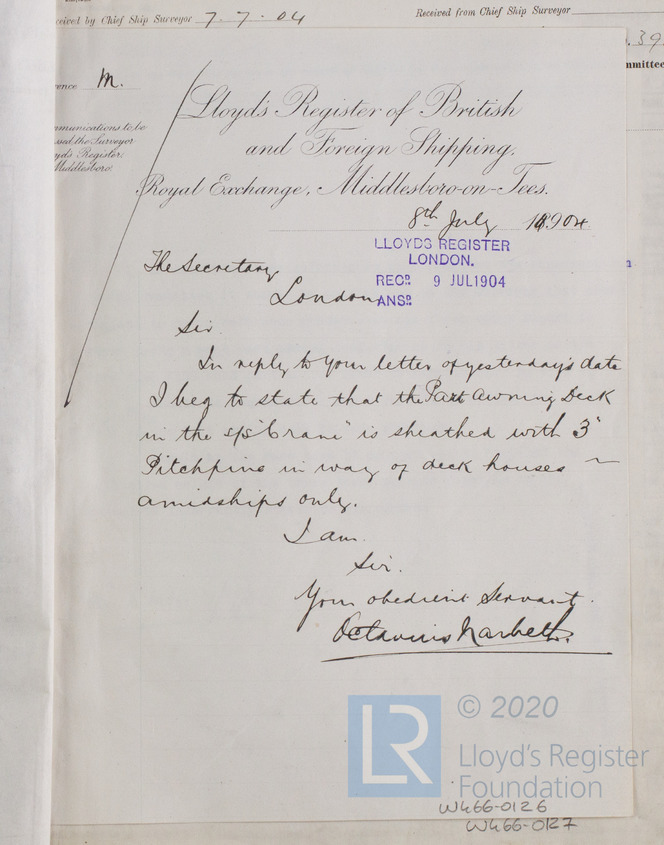 ceived by Chief Ship Surveyor 7. 7. 04
Received from Chief Ship Surveyor
39
mmittee
ence M.
mmunications to be
ssed the Surveyor
yd's Register.
Middlesboro.
Lloyd's Register of British
and Foreign Shipping.
Royal Exchange, Middlesboro-on-Tees.
8th July 1904
LLOYDS REGISTER
LONDON.
RECD. 9 JUL 1904
ANSD.
The Secretary
London
Sir.
In reply to your letter of yesterday's date
I beg to state that the Part Awning Deck
in the s/s "Crane" is sheathed with 3"
Pitchpine in way of deck houses
amidships only.
I am.
Sir.
Your obedient Servant.
Octavius Narbeth.
LR
© 2020
Lloyd's Register
Foundation
W466-0126
W466-0127